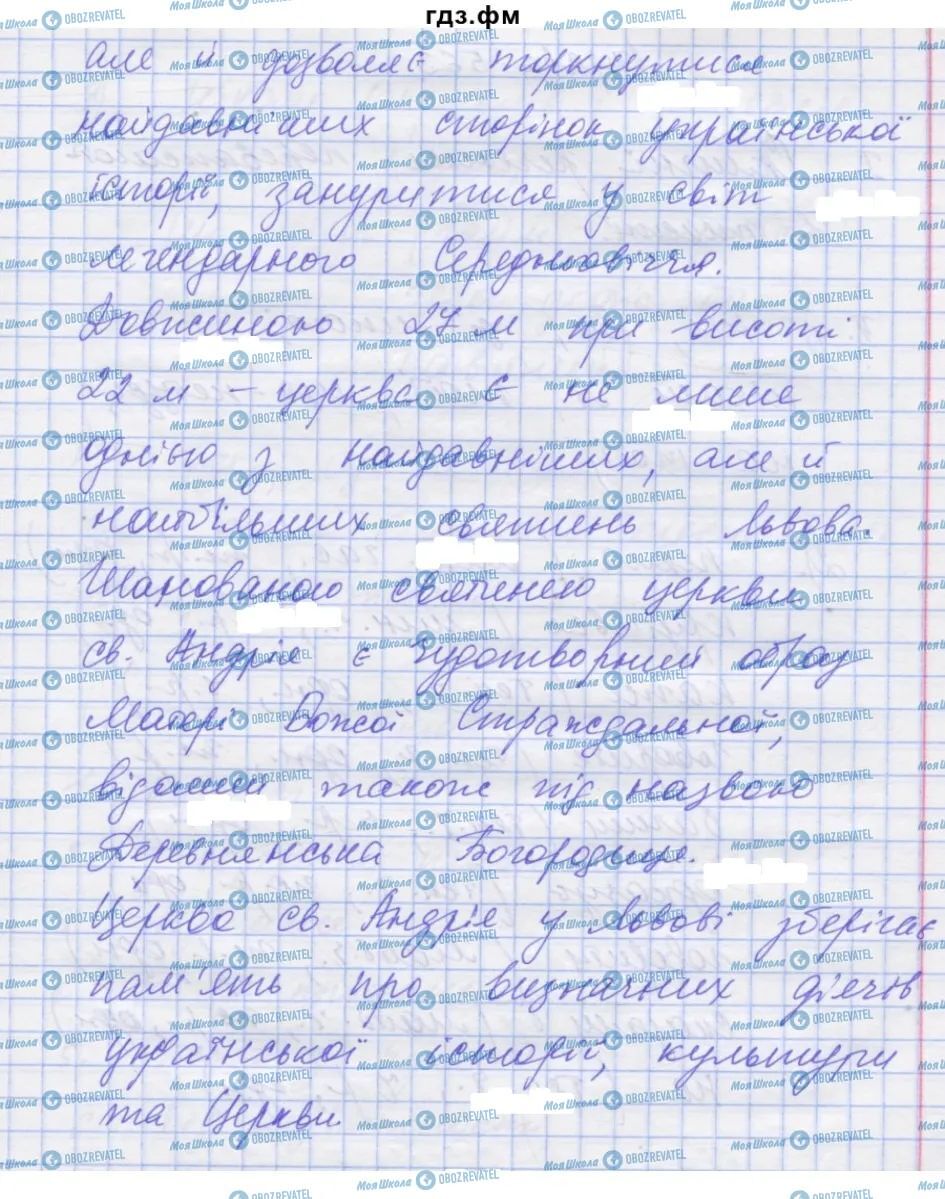 гдз.фм
але й дозволяє торкнутися
найдавніших сторінок української
історії, зануритися у світ
легендарного Середньовіччя.
Довжиною 27 м при висоті
22 м – церква є не лише
однією з найдавніших, але й
найбільших святинь Львова.
Шанованою святинею церкви
св. Андрія є чудотворний образ
Матері Божої Страждальної,
відомий також під назвою
Деревнянська Богородиця.
Церква св. Андрія у Львові зберігає
пам'ять про визначних діячів
української історії, культури
та Церкви.